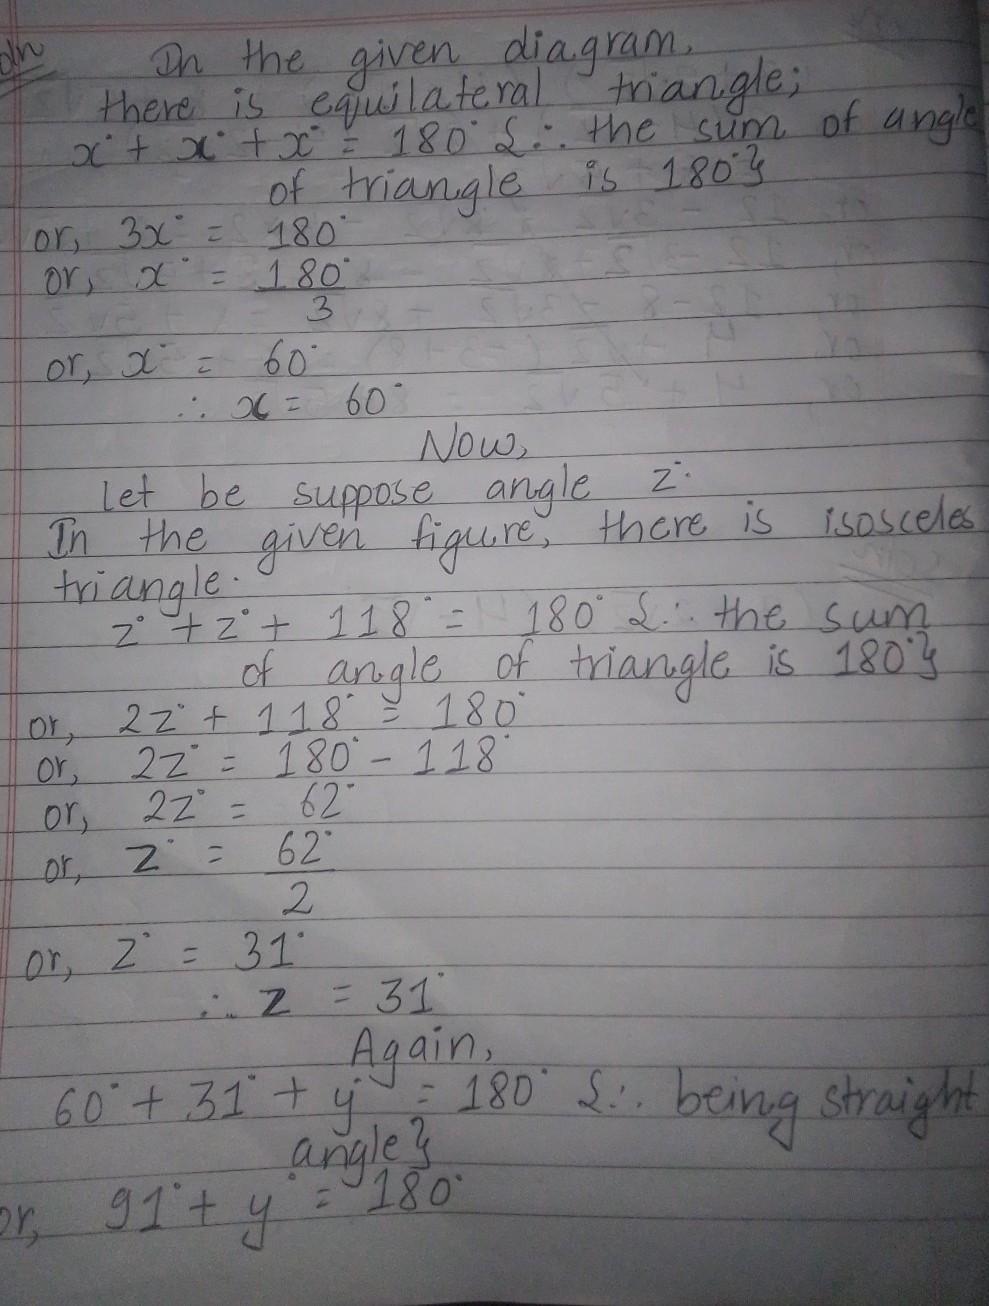 In the given diagram,
there is equilateral triangle;
x° + x° + x° = 180° {∴ the sum of angle
of triangle is 180°}
or, 3x° = 180°
or, x° = 180°
3
or, x° = 60°
∴ x = 60°
Now,
Let be suppose angle z°.
In the given figure, there is isosceles
triangle.
z° + z° + 118° = 180° {∴ the sum
of angle of triangle is 180°}
or, 2z° + 118° = 180°
or, 2z° = 180° - 118°
or, 2z° = 62°
or, z° = 62°
2
or, z° = 31°
∴ z = 31°
Again,
60° + 31° + y° = 180° {∴ being straight
angle}
or, 91° + y° = 180°